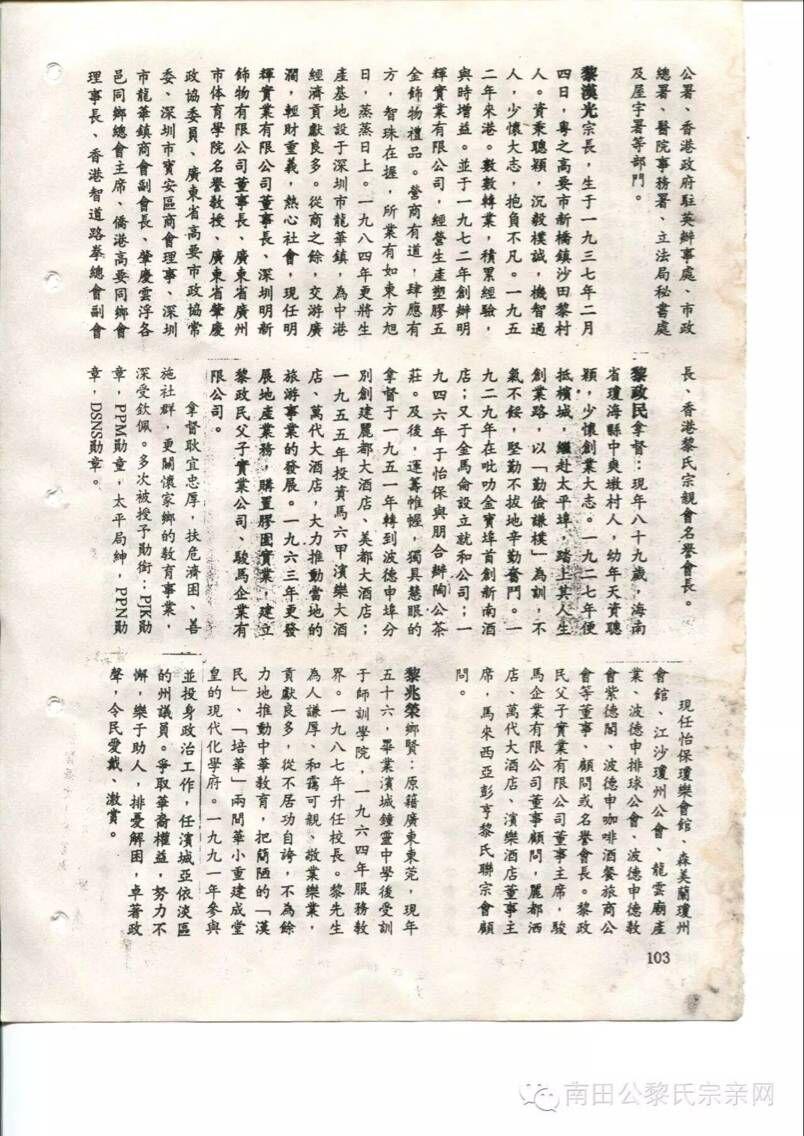 公署、香港政府駐英辦事處、市政
總署、醫院事務署、立法局秘書處
及屋宇署等部門。
黎漢光宗長，生于一九三七年二月
四日，粵之高要市新橋鎮沙田黎村
人。資秉聰穎，沉毅樸誠，機智過
人，少懷大志，抱負不凡。一九五
二年來港。數數轉業，積累經驗，
與時增益。並于一九七二年創辦明
輝實業有限公司，經營生產塑膠五
金飾物禮品。營商有道，肆應有
方，智珠在握，所業有如東方旭
日，蒸蒸日上。一九八四年更將生
產基地設于深圳市龍華鎮，為中港
經濟貢獻良多。從商之餘，交游廣
濶，輕財重義，熱心社會，現任明
輝實業有限公司董事長、深圳明新
飾物有限公司董事長、廣東省廣州
市体育學院名譽教授、廣東省肇慶
政協委員、廣東省高要市政協常
委、深圳市寶安區商會理事、深圳
市龍華鎮商會副會長、肇慶雲浮各
邑同鄉總會主席、僑港高要同鄉會
理事長、香港智道路拳總會副會
長、香港黎氏宗親會名譽會長。
黎政民拿督：現年八十九歲，海南
省瓊海縣中爽墩村人，幼年天資聰
穎，少懷創業大志。一九二七年便
抵檳城，繼赴太平埠，踏上其人生
創業路，以「勤儉謙樸」為訓，不
氣不餒，堅勤不拔地辛勤奮鬥。一
九二九年在吡叻金寶埠首創新南酒
店；又于金馬倫設立就和公司；一
九四六年于怡保與朋合辦陶公茶
莊。及後，運籌帷幄，獨具慧眼的
拿督于一九五一年轉到波德申埠分
別創建麗都大酒店、美都大酒店；
一九五五年投資馬六甲濱樂大酒
店、萬代大酒店，大力推動當地的
旅游事業的發展。一九六三年更發
展地產業務，購置膠園實業，建立
黎政民父子實業公司、駿馬企業有
限公司。
拿督耿宜忠厚，扶危濟困、善
施社群，更關懷家鄉的教育事業，
深受欽佩。多次被授予勛銜：PJK勛
章，PPM勛童，太平局紳，PPN勛
章，DSNS勛章。
現任怡保瓊樂會館、森美蘭瓊州
會館、江沙瓊州公會、龍雲廟產
業、波德申排球公會、波德申德教
會紫德閣、波德申咖啡酒餐旅商公
會等董事、顧問或名譽會長。黎政
民父子實業有限公司董事主席，駿
馬企業有限公司董事顧問，麗都洒
店、萬代大酒店、濱樂酒店董事主
席，馬來西亞彭亨黎氏聯宗會顧
問。
黎兆榮鄉賢：原籍廣東東莞，現年
五十六，畢業濱城鐘靈中學後受訓
于師訓學院，一九六四年服務教
界。一九八七年升任校長。黎先生
為人謙厚、和靄可親、敬業樂業，
貢獻良多，從不居功自誇，不為餘
力地推動中華教育，把簡陋的「漢
民」、「培華」兩間華小重建成堂
皇的現代化學府。一九九一年參與
並投身政治工作，任濱城亞依淡區
的州議員。爭取華裔權益，努力不
懈，樂于助人，排憂解困，卓著政
聲，令民愛戴、激賞。
103
南田公黎氏宗亲网